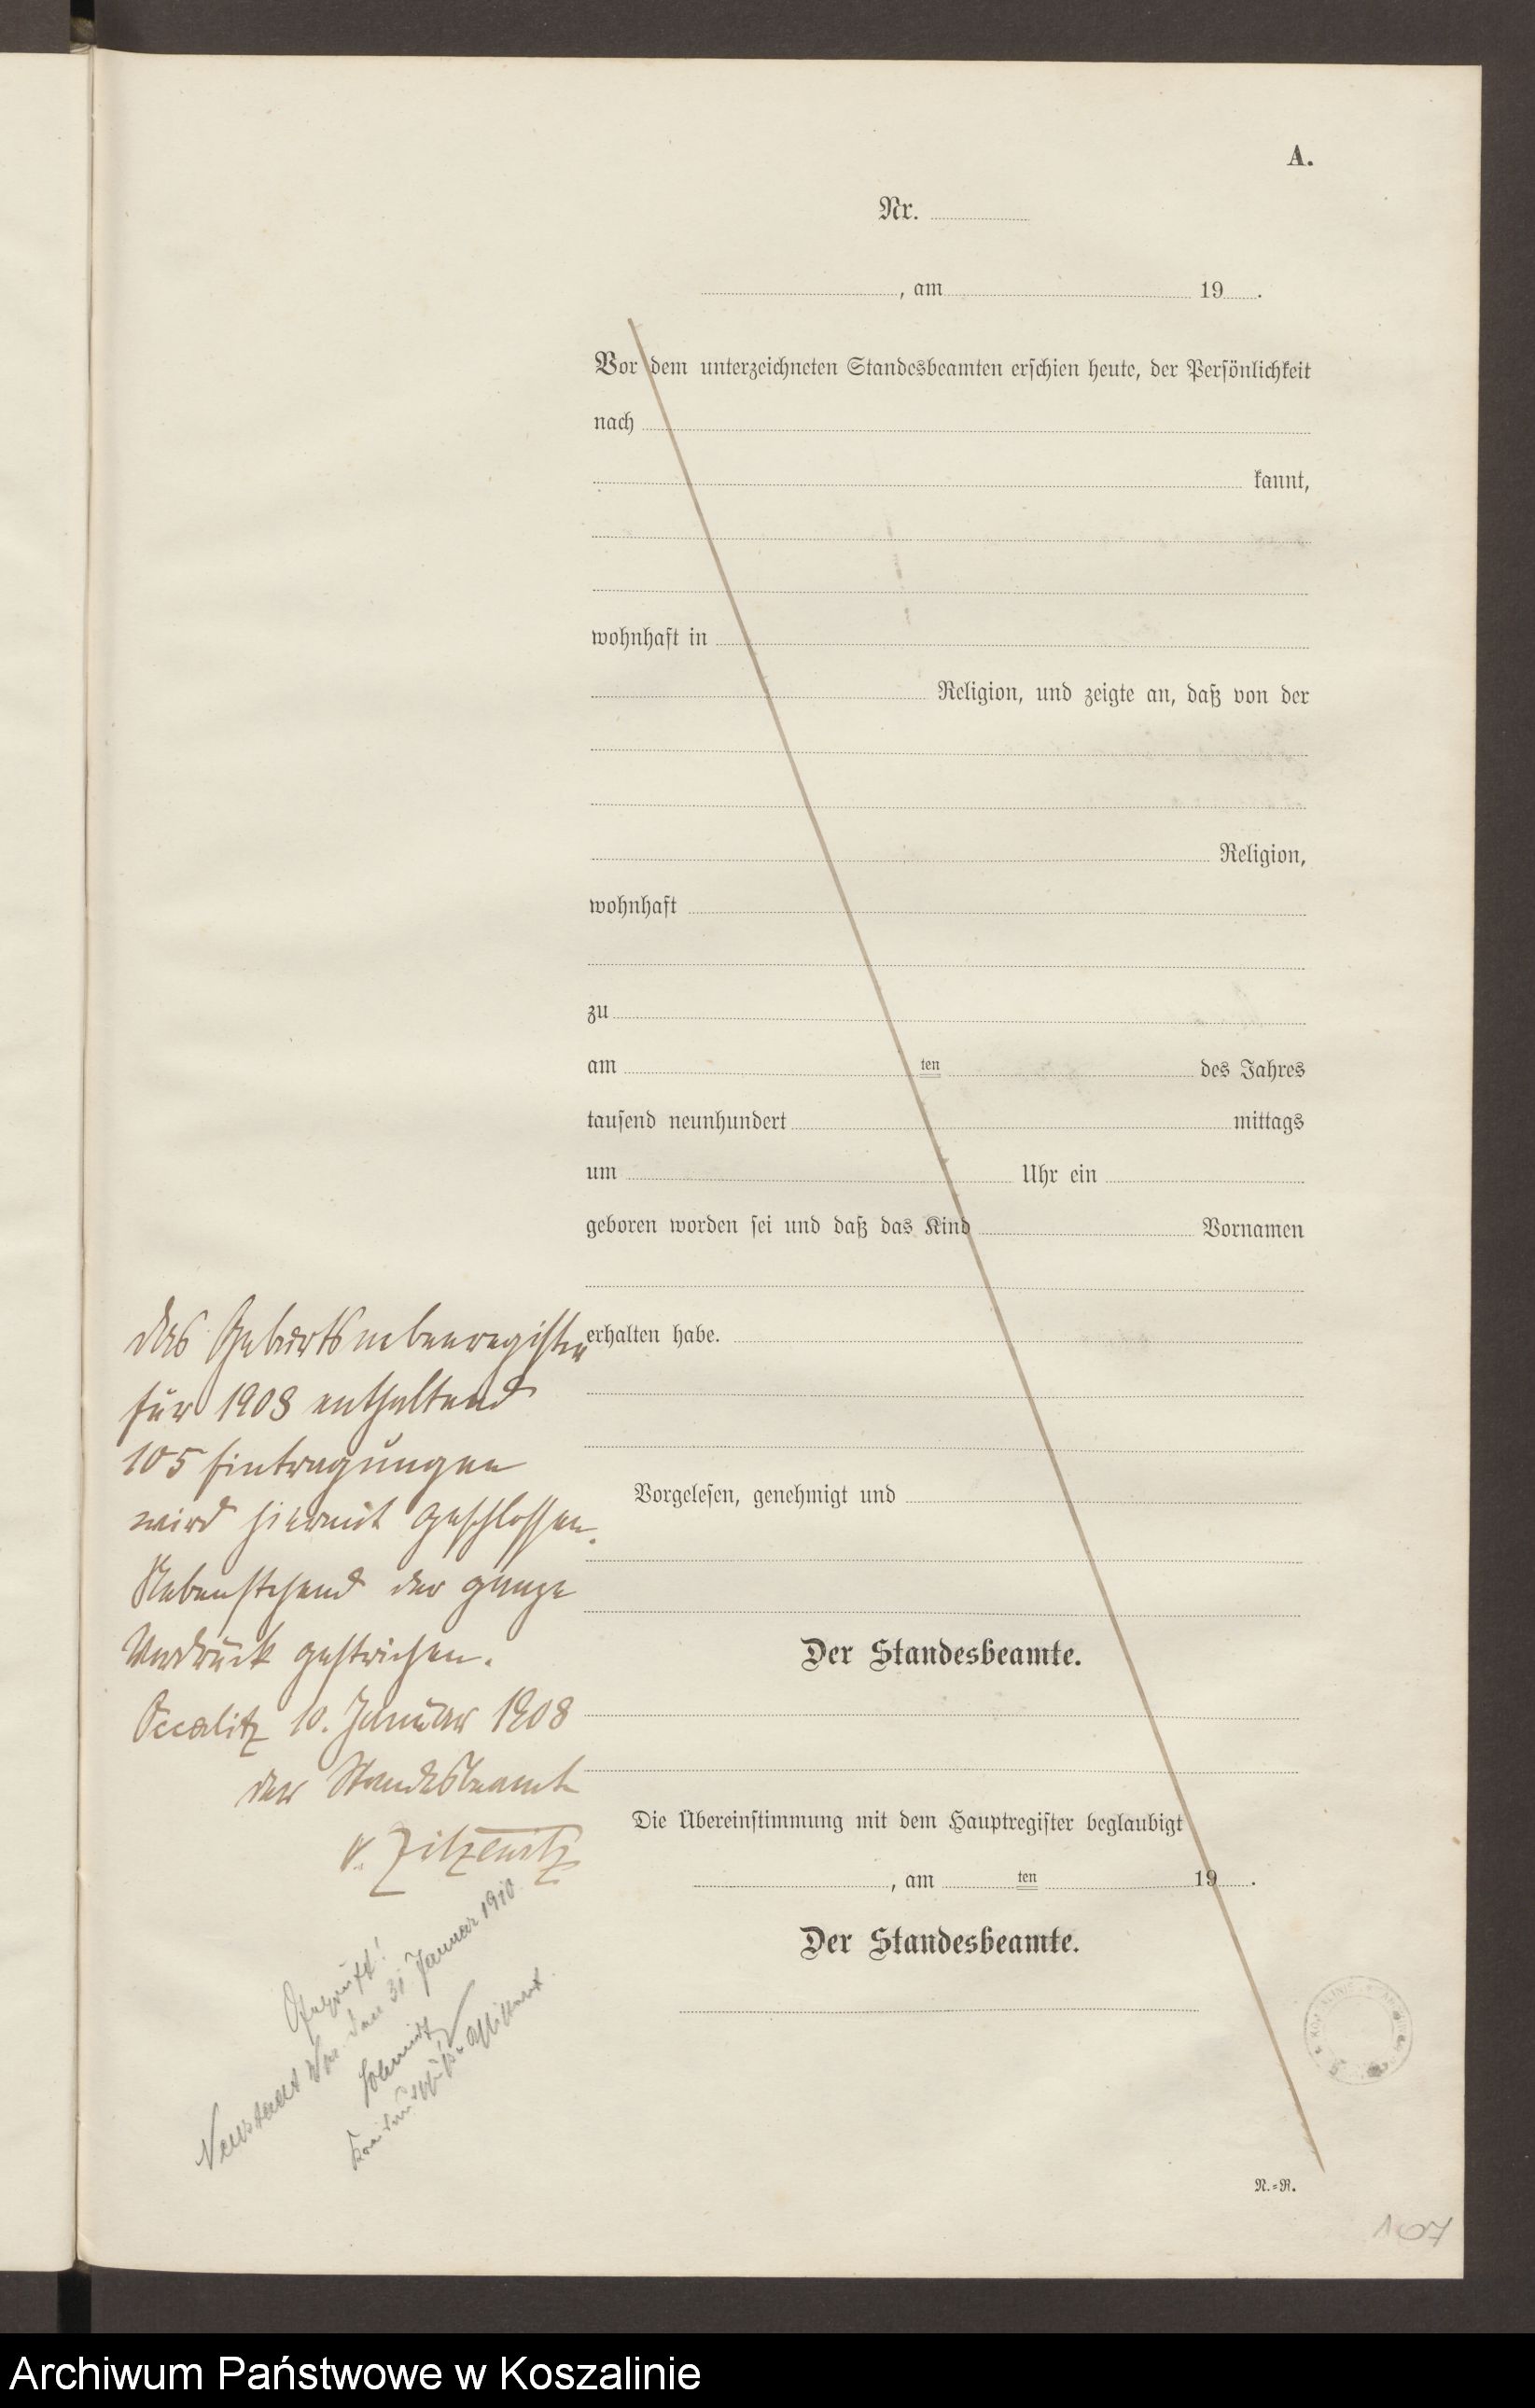 A.
Nr.
, am 19 .
Vor dem unterzeichneten Standesbeamten erschien heute, der Persönlichkeit
nach
kannt,
wohnhaft in
Religion, und zeigte an, daß von der
Religion,
wohnhaft
zu
am ten des Jahres
tausend neunhundert mittags
um Uhr ein
geboren worden sei und daß das Kind Vornamen
erhalten habe.
Vorgelesen, genehmigt und
Der Standesbeamte.
Die Übereinstimmung mit dem Hauptregister beglaubigt
, am ten 19 .
Der Standesbeamte.
N.=R.
Das Geburtsnebenregister
für 1908 enthaltend
105 Eintragungen
wird hiermit geschlossen.
Nebenstehend der ganze
Vordruck gestrichen.
Occalitz 10. Januar 1908
der Standesbeamte
v. Zitzewitz
Geprüft!
Neustadt Wpr. den 31 Januar 1910.
Schmidt
Kreisausschuß-Assistent.
107
Archiwum Państwowe w Koszalinie